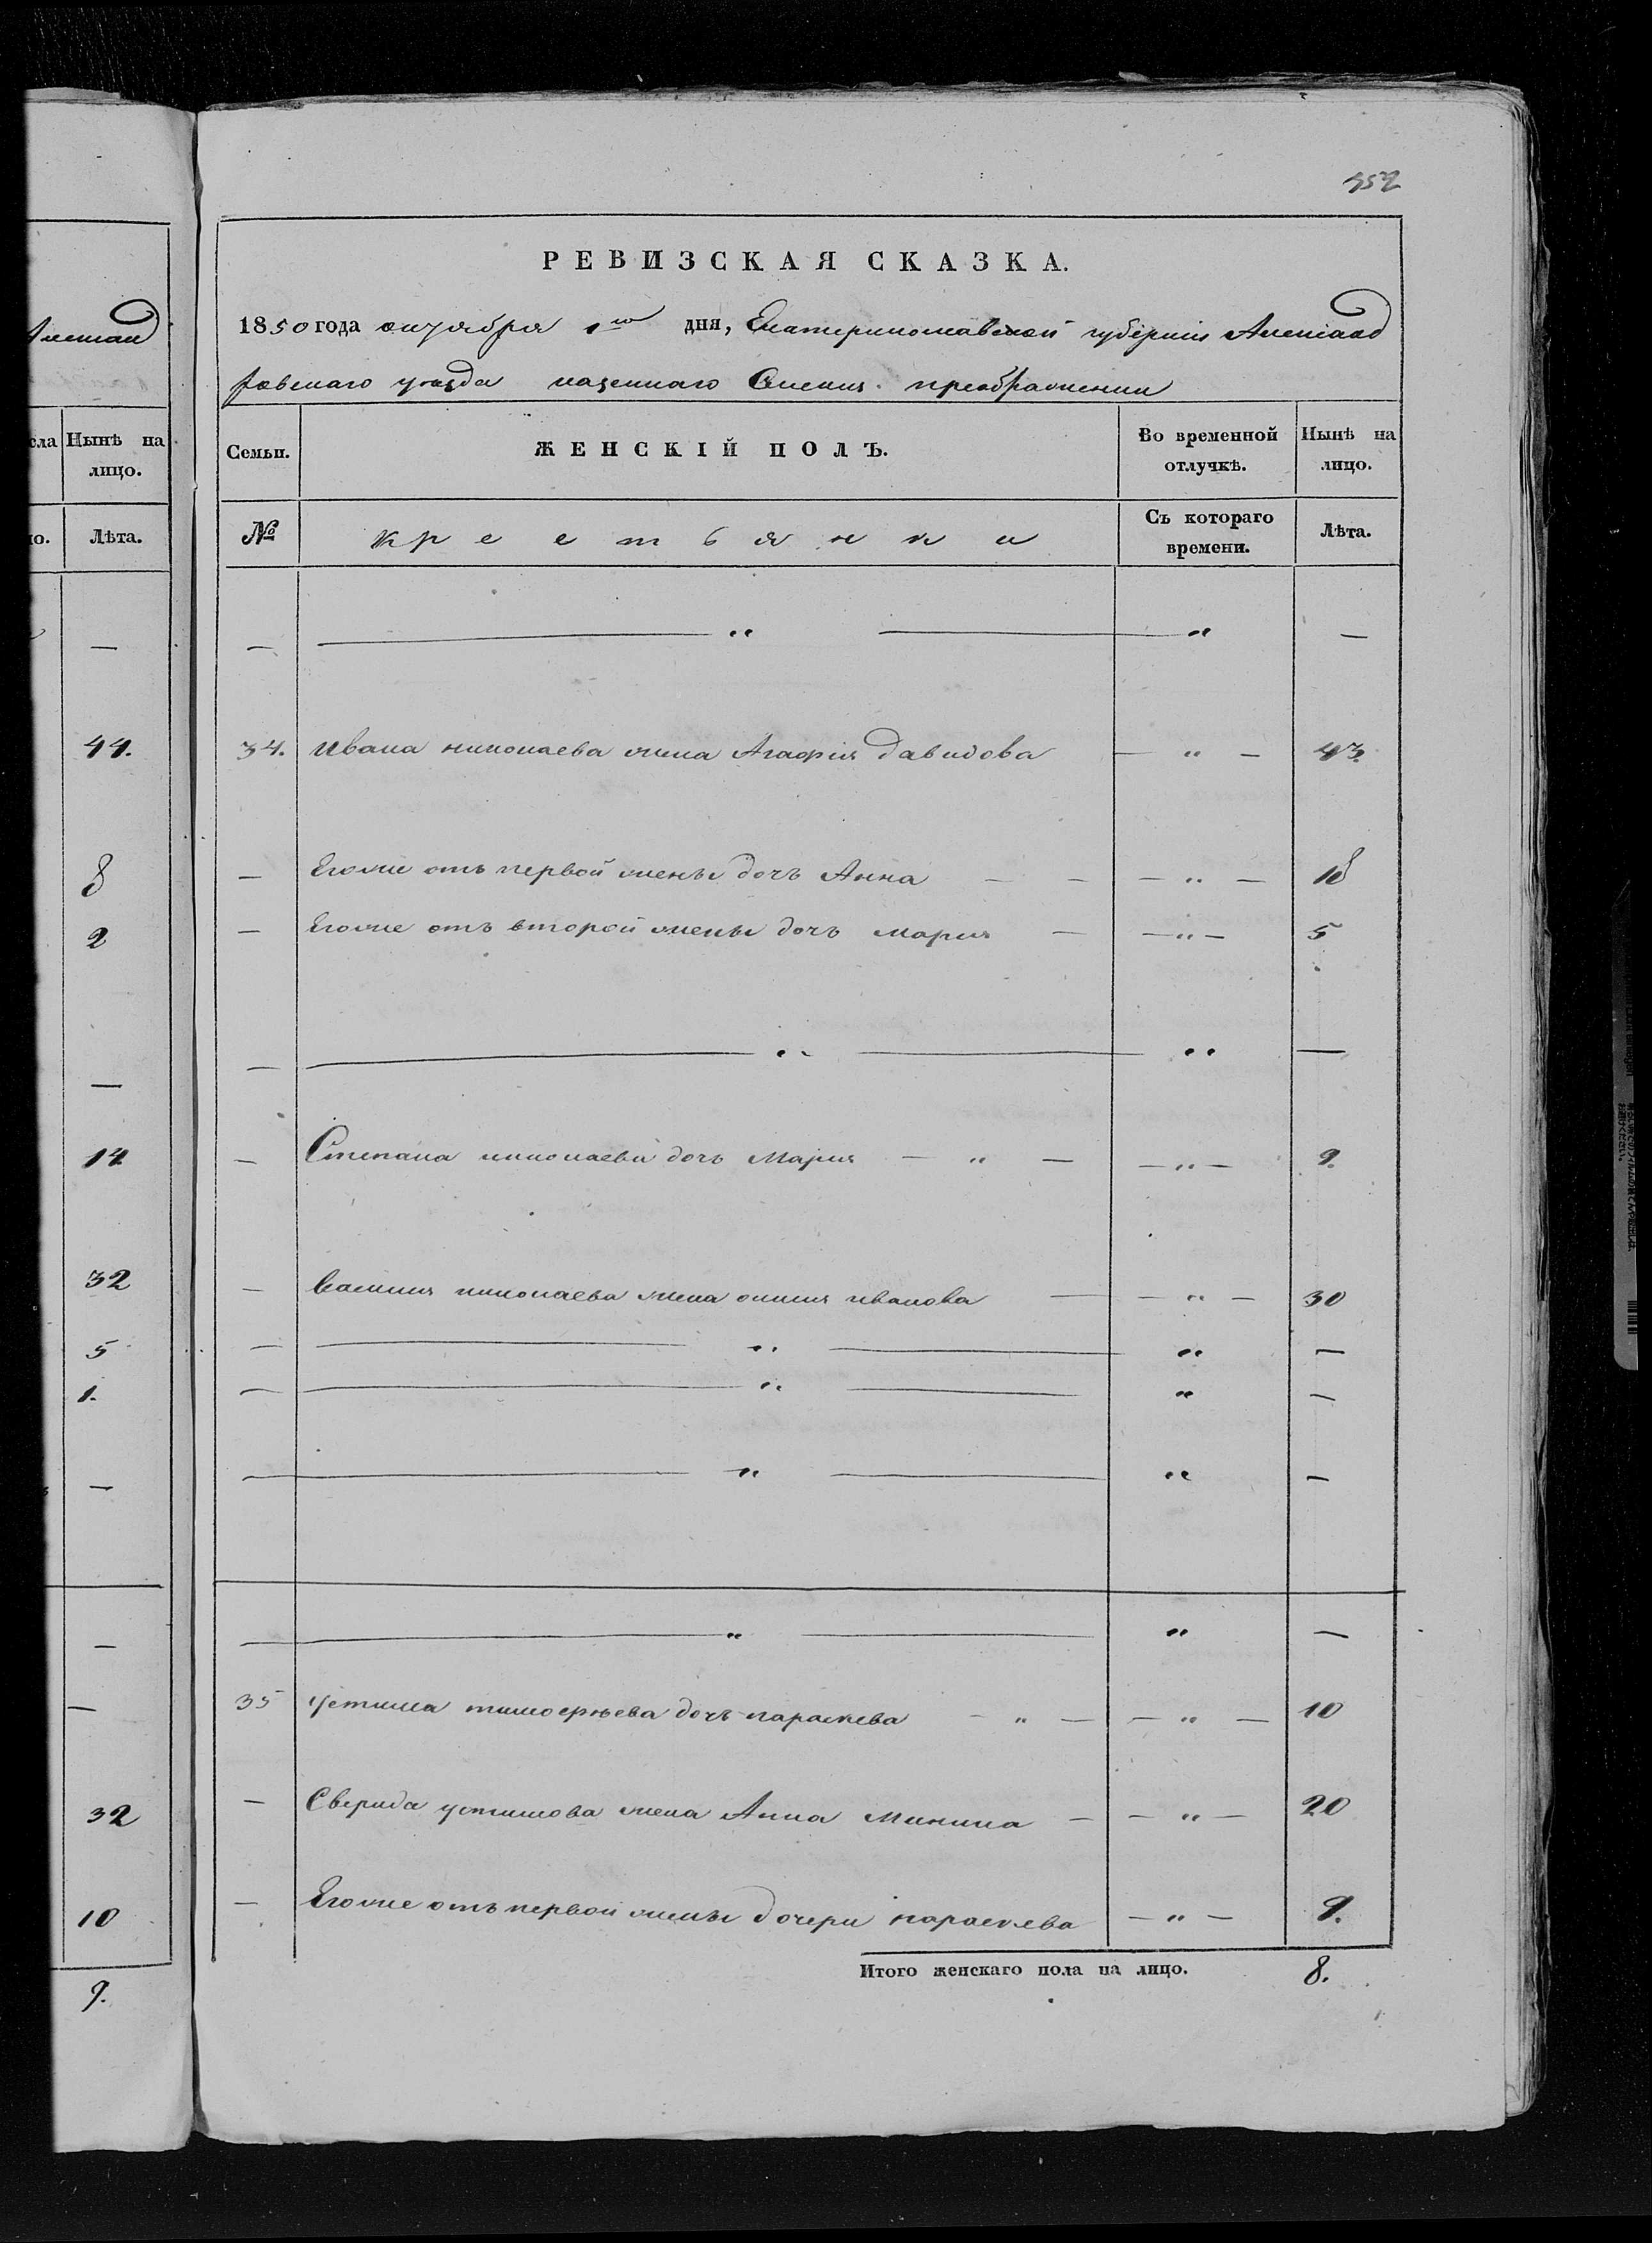 957
РЕВИЗСКАЯ СКАЗКА.
1850 года октября 1го дня, Екатеринославской губерніи Александ
ровскаго уезда казеннаго Селенія преображенки
сла Нынѣ на лицо.
Лѣта.
Семьи. ЖЕНСКІЙ ПОЛЪ. Во временной отлучкѣ. Нынѣ на лицо.
№ Крестьянки Съ котораго времени. Лѣта.
— — „ — „ —
44. 34. Ивана николаева жена Агафія Давидова — „ — 43.
8 — Егоже отъ первой жены дочь Анна — — — „ — 18
2 — Егоже отъ второй жены дочь Марія — — „ — 5
— — — „ — „ —
14 — Степана николаева дочь Марія — „ — — „ — 9.
32 — Василія николаева жена иванова — — „ — 30
5 — — „ — „ —
1. — — „ — „ —
— — — „ — „ —
— — — „ — „ —
— 35 Устина тимофѣева дочь параскева — „ — — „ — 10
32 — Сверида устинова жена Анна Минина — — „ — 20
10 — Егоже отъ первой жены дочери параскева — „ — 9.
9. Итого женскаго пола на лицо. 8.